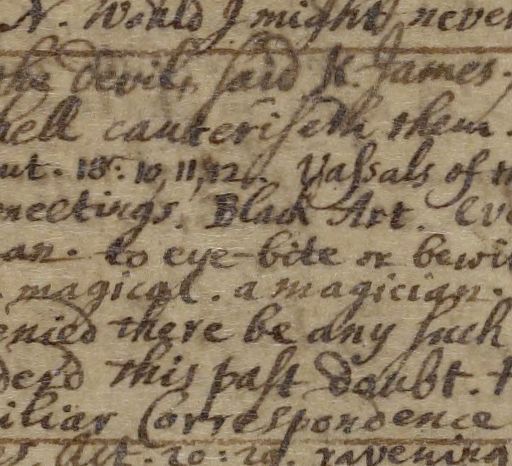 N. World I might never
the devil, said K. James.
hell cauteriseth them.
ut. 18. 10, 11, 12. Vassals of
meetings. Black Art. Ev
an. to eye-bite or bewi
magical. a magician.
enied there be any such
dered this past doubt.
iliar Correspondence
Act. 20. 29. ravening